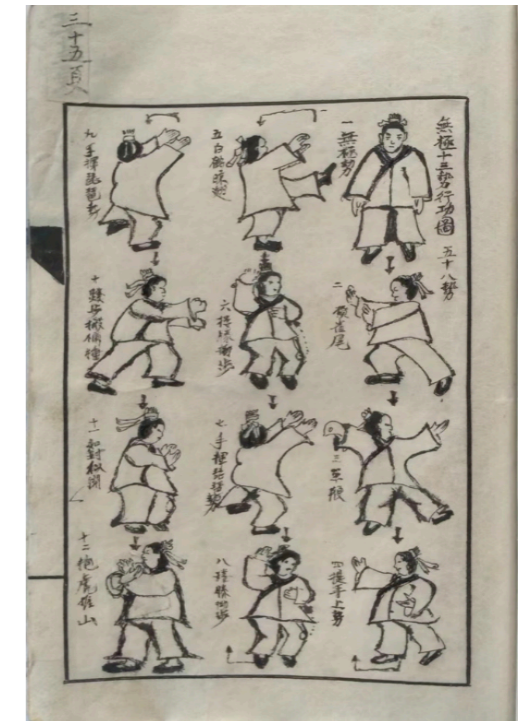 三十五頁
無極十三勢行功圖 五十八勢
一 無極勢
二 雀尾
三 單
四 提手上勢
五 白鶴翅
六 膝拗步
七 手揮琵琶勢
八 膝拗步
九 手揮琵琶勢
十 步
十一 如封
十二 抱虎推山